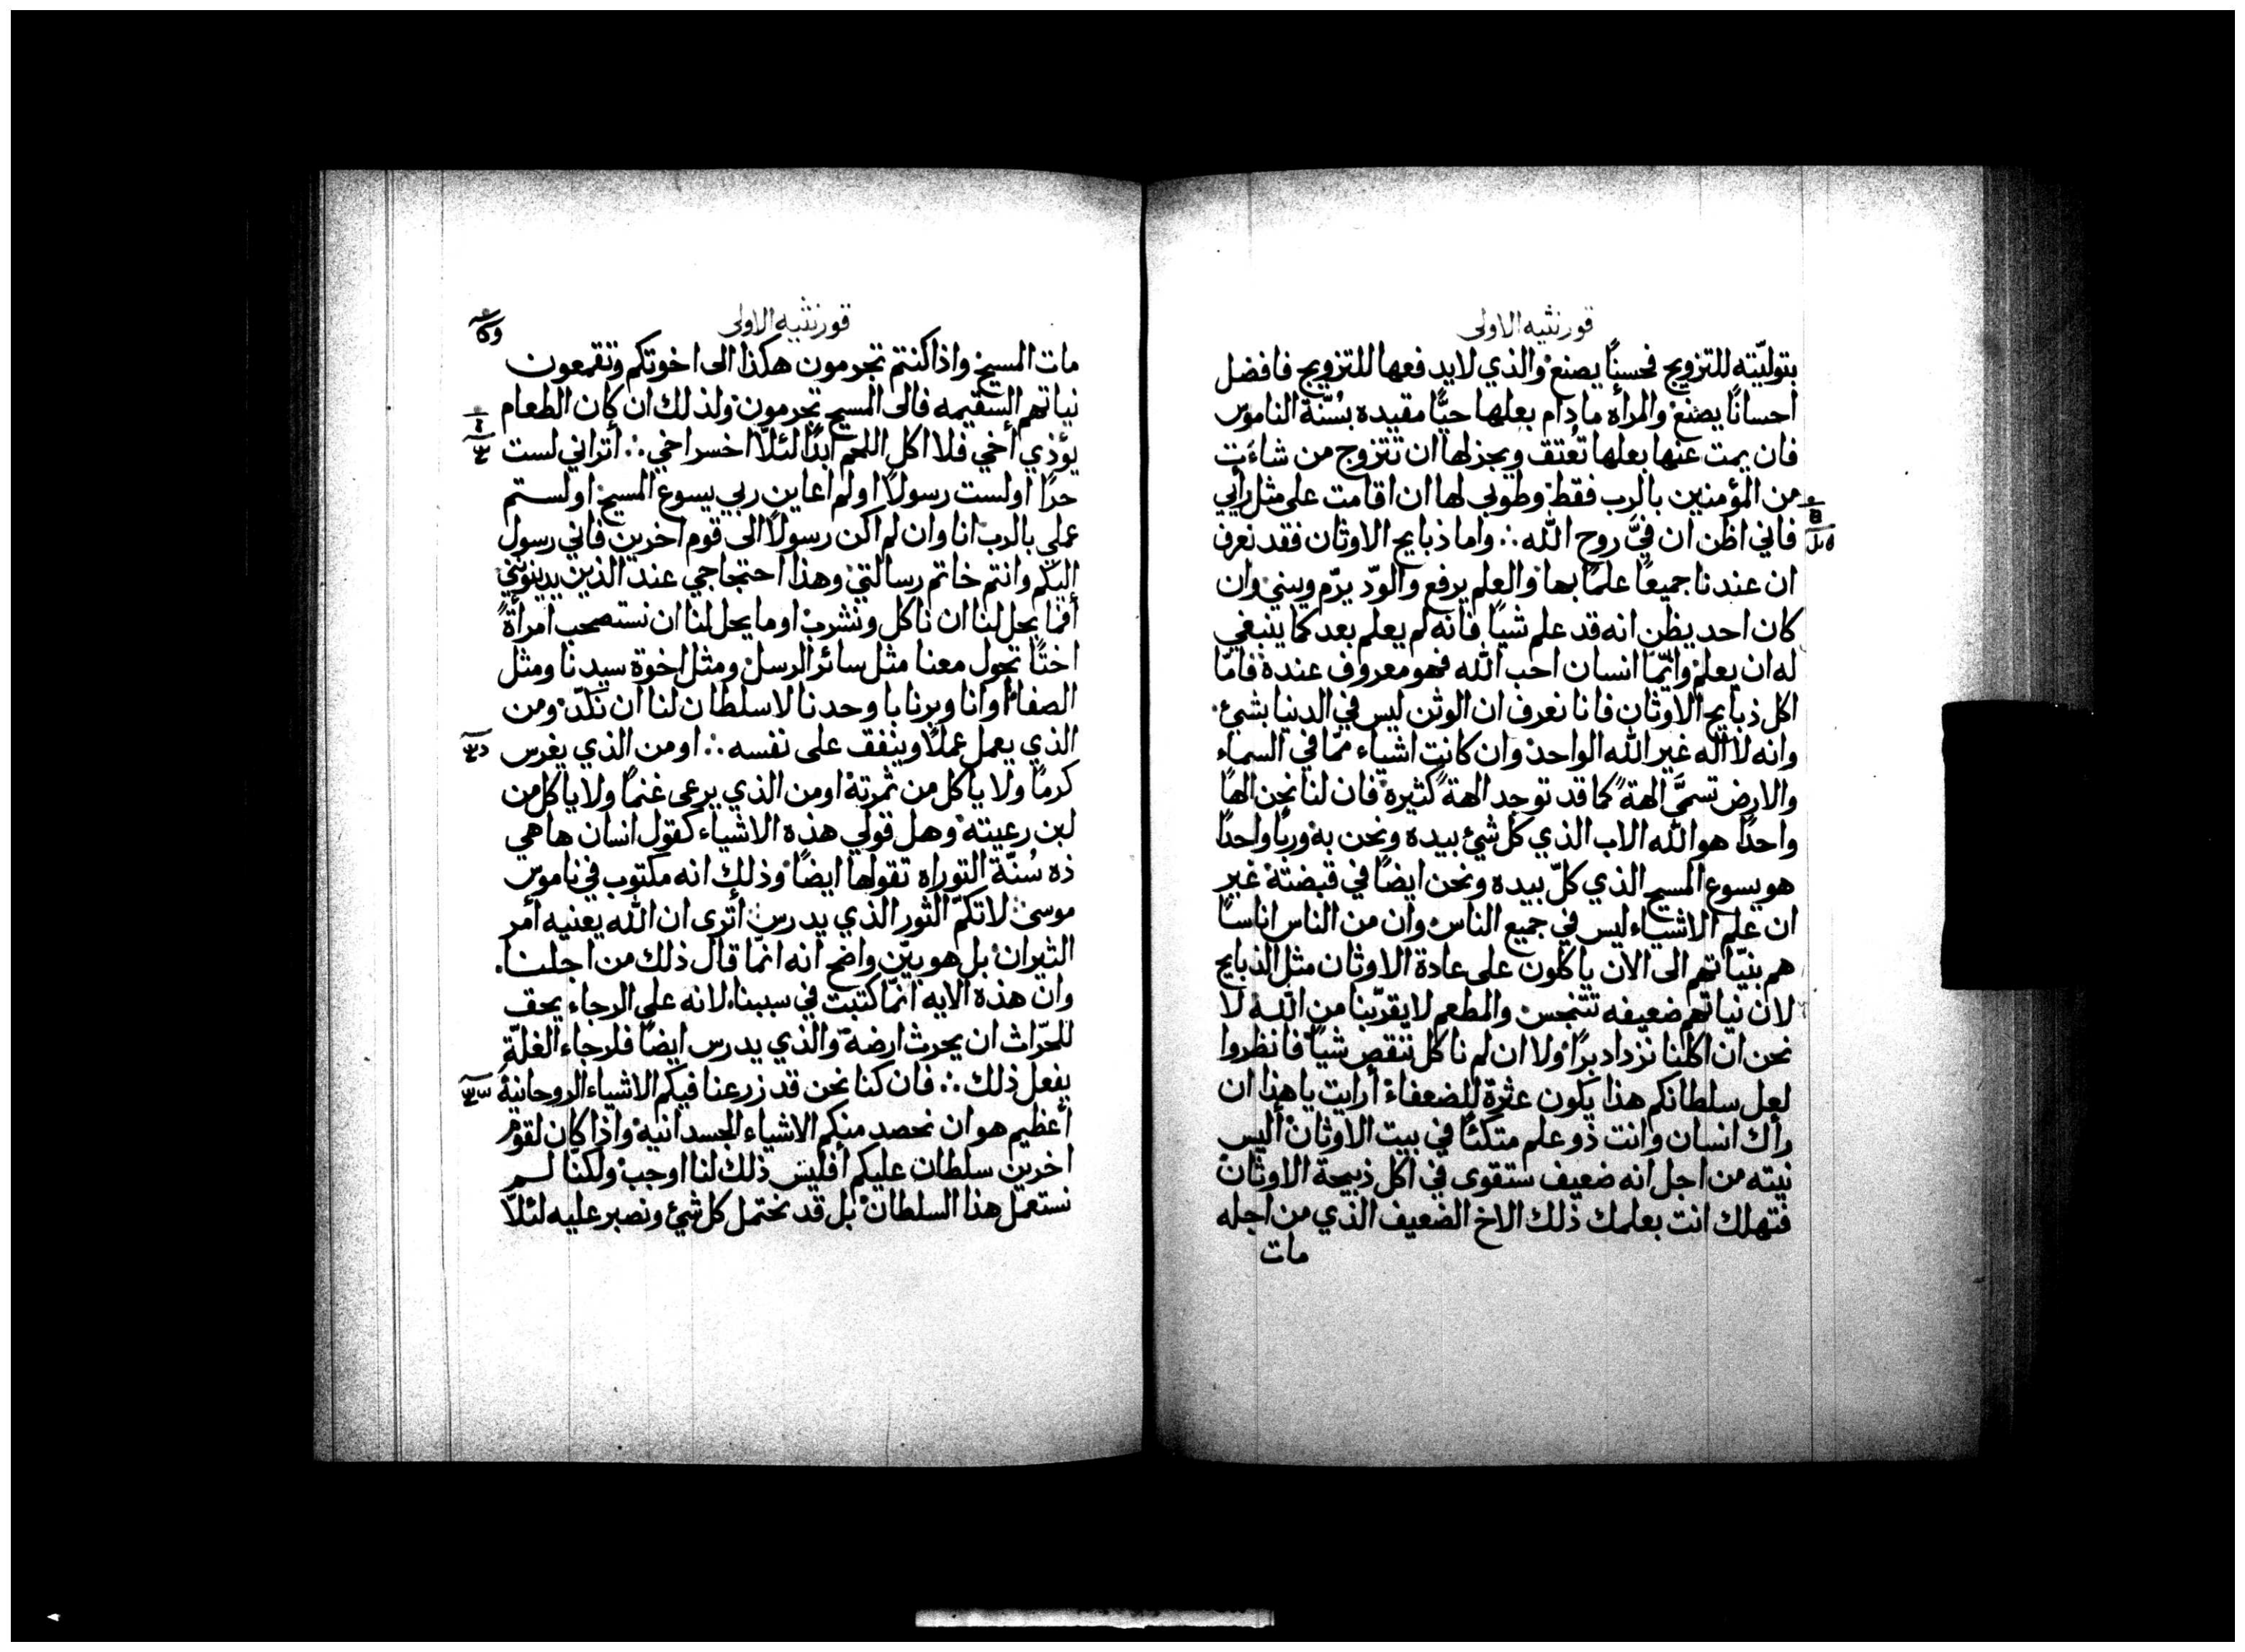 قورنثيه الاولى
بتوليّته للتزويج فحسنًا يصنع والذي لا يدفعها للتزويج فافضل
احسانًا يصنع والمرأه ما دام بعلها حيًّا مقيده بسُنّة الناموس
فان يمت عنها بعلها تُعتق ويجز لها ان تتزوج من شاءَت
من المؤمنين بالرب فقط وطوبي لها ان اقامت على مثل رأيي
فاني اظن ان فيَّ روح الله ∴ واما ذبايح الاوثان فقد نعرف
ان عندنا جميعًا علمًا بها والعلم يرفع والودّ يرّم ويبني وان
كان احد يظن انه قد علم شيًا فانه لم يعلم بعد كما ينبغي
له ان يعلم وايّما انسان احب الله فهو معروف عنده فامّا
اكل ذبايح الاوثان فانا نعرف ان الوثن ليس في الدنيا بشئ
وانه لا اله غير الله الواحد وان كانت اشياء ممّا في السماء
والارض تسمَّى الهةً كما قد توجد الهةً كثيرة فان لنا نحن الهًا
واحدًا هو الله الاب الذي كل شئ بيده ونحن به وربًا واحدًا
هو يسوع المسيح الذي كلّ بيده ونحن ايضًا في قبضته غير
ان علم الاشياء ليس في جميع الناس وان من الناس اناسًا
هم بنيّاتهم الى الان ياكلون على عادة الاوثان مثل الذبايح
لان نياتهم ضعيفه تتنجس والمطعم لا يقرّبنا من الله لا
نحن ان اكلنا نزداد برًا ولا ان لم ناكل ننقص شيًا فانظروا
لعل سلطانكم هذا يكون عثرة للضعفاء أرايت يا هذا ان
رأك انسان وانت ذو علم متكئًا في بيت الاوثان أليس
نيته من اجل انه ضعيف ستقوى في اكل ذبيحة الاوثان
فتهلك انت بعلمك ذلك الاخ الضعيف الذي من اجله
مات
قورنثيه الاولى
مات المسيح واذا كنتم تجرمون هكذا الى اخوتكم وتقمعون
نياتهم السقيمه فالى المسيح تجرمون ولذلك ان كان الطعام
يؤذي أخي فلا اكل اللحم ابدًا لئلّا اخسر اخي ∴ أتراني لست
حرًا أولست رسولًا اولم اعاين ربي يسوع المسيح اولستم
عملي بالرب انا وان لم اكن رسولًا الى قوم اخرين فاني رسول
اليكم وانتم خاتم رسالتي وهذا احتجاجي عند الذين يدينونني
أفما يحل لنا ان ناكل ونشرب او ما يحل لنا ان نستصحب امرأةً
اختًا تجول معنا مثل سائر الرسل ومثل اخوة سيدنا ومثل
الصفا أو انا وبرنابا وحدنا لا سلطان لنا ان نكدّ ومن
الذي يعمل عملًا وينفق على نفسه ∴ او من الذي يغرس
كرمًا ولا ياكل من ثمرته او من الذي يرعى غنمًا ولا ياكل من
لبن رعيته وهل قولي هذه الاشياء كقول انسان ها هي
ذه سُنّة التوراه تقولها ايضًا وذلك انه مكتوب في ناموس
موسى لا تكمّ الثور الذي يدرس أترى ان الله يعنيه أمر
الثيران بل هو بيّن واضح انه انمّا قال ذلك من اجلنا
وان هذه الايه انمّا كتبت في سببنا لانه على الرجاء يحق
للحرّاث ان يحرث ارضه والذي يدرس ايضًا فلرجاء الغلّة
يفعل ذلك ∴ فان كنا نحن قد زرعنا فيكم الاشياء الروحانية
أعظيم هو ان نحصد منكم الاشياء الجسدانيه واذا كان لقوم
اخرين سلطان عليكم أفليس ذلك لنا اوجب ولكنا لم
نستعمل هذا السلطان بل قد نحتمل كل شئ ونصبر عليه لئلّا